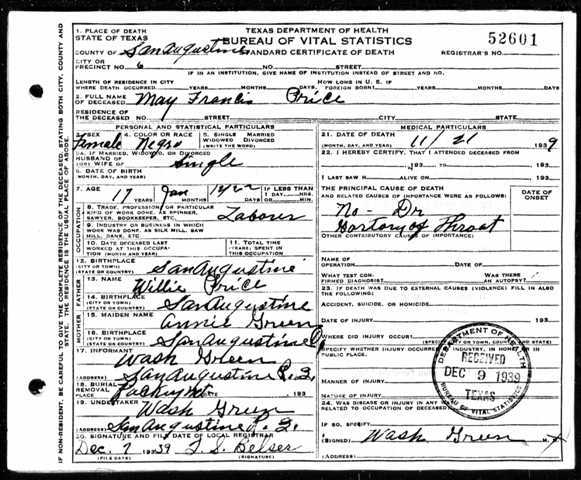 TEXAS DEPARTMENT OF HEALTH
BUREAU OF VITAL STATISTICS
STANDARD CERTIFICATE OF DEATH
52601
REGISTRAR'S NO.
1. PLACE OF DEATH
STATE OF TEXAS
COUNTY OF San Augustine
CITY OR
PRECINCT NO. 6
IF IN AN INSTITUTION, GIVE NAME OF INSTITUTION INSTEAD OF STREET AND NO.
LENGTH OF RESIDENCE IN CITY
WHERE DEATH OCCURRED YEARS MONTHS DAYS
HOW LONG IN U. S. IF
FOREIGN BORN? YEARS MONTHS DAYS
2. FULL NAME
OF DECEASED May Francis Price
RESIDENCE OF
THE DECEASED NO. STREET CITY STATE
PERSONAL AND STATISTICAL PARTICULARS
SEX 4. COLOR OR RACE 5. SINGLE MARRIED
WIDOWED DIVORCED
Female Negro
5A. IF MARRIED, WIDOWED, OR DIVORCED
HUSBAND OF
(OR) WIFE OF Single
6. DATE OF BIRTH
(MONTH, DAY, AND YEAR)
7. AGE 17 YEARS Jan MONTHS DAYS IF LESS THAN
1 DAY, HRS. MIN.
OCCUPATION
8. TRADE, PROFESSION OR PARTICULAR
KIND OF WORK DONE, AS SPINNER,
SAWYER, BOOKKEEPER, ETC. Laborer
9. INDUSTRY OR BUSINESS IN
WHICH WORK WAS DONE, AS SILK MILL, SAW
MILL, BANK, ETC.
10. DATE DECEASED LAST
WORKED AT THIS OCCUPA-
TION (MONTH AND YEAR)
11. TOTAL TIME
(YEARS) SPENT IN
THIS OCCUPATION
12. BIRTHPLACE
(CITY OR TOWN)
(STATE OR COUNTRY) San Augustine
FATHER
13. NAME Willie Price
14. BIRTHPLACE
(CITY OR TOWN)
(STATE OR COUNTRY) San Augustine
MOTHER
15. MAIDEN NAME Annie Green
16. BIRTHPLACE
(CITY OR TOWN)
(STATE OR COUNTRY) San Augustine
17. INFORMANT Wash Green
(ADDRESS) San Augustine
18. BURIAL
REMOVAL
PLACE 193
19. UNDERTAKER Wash Green
(ADDRESS) San Augustine
20. SIGNATURE AND FILE DATE OF LOCAL REGISTRAR
Dec. 7 1939
(FILE DATE) (SIGNATURE)
MEDICAL PARTICULARS
21. DATE OF DEATH
(MONTH, DAY, AND YEAR) 11/21 1939
22. I HEREBY CERTIFY, THAT I ATTENDED DECEASED FROM
193 TO 193
I LAST SAW H ALIVE ON 193
THE PRINCIPAL CAUSE OF DEATH
AND RELATED CAUSES OF IMPORTANCE WERE AS FOLLOWS:
DATE OF
ONSET
No - Dr
of Throat
OTHER CONTRIBUTORY CAUSES OF IMPORTANCE:
NAME OF
OPERATION DATE OF
WHAT TEST CON-
FIRMED DIAGNOSIS? WAS THERE
AN AUTOPSY?
23. IF DEATH WAS DUE TO EXTERNAL CAUSES (VIOLENCE) FILL IN ALSO
THE FOLLOWING:
ACCIDENT, SUICIDE, OR HOMICIDE?
DATE OF INJURY 193
WHERE DID INJURY OCCUR?
SPECIFY WHETHER INJURY OCCURRED IN INDUSTRY, IN HOME, OR IN
PUBLIC PLACE.
MANNER OF INJURY
NATURE OF INJURY
24. WAS DISEASE OR INJURY IN ANY WAY
RELATED TO OCCUPATION OF DECEASED?
IF SO, SPECIFY
(SIGNED) Wash Green
(ADDRESS)
DEPARTMENT OF HEALTH
RECEIVED
DEC 9 1939
TEXAS
BUREAU OF VITAL STATISTICS